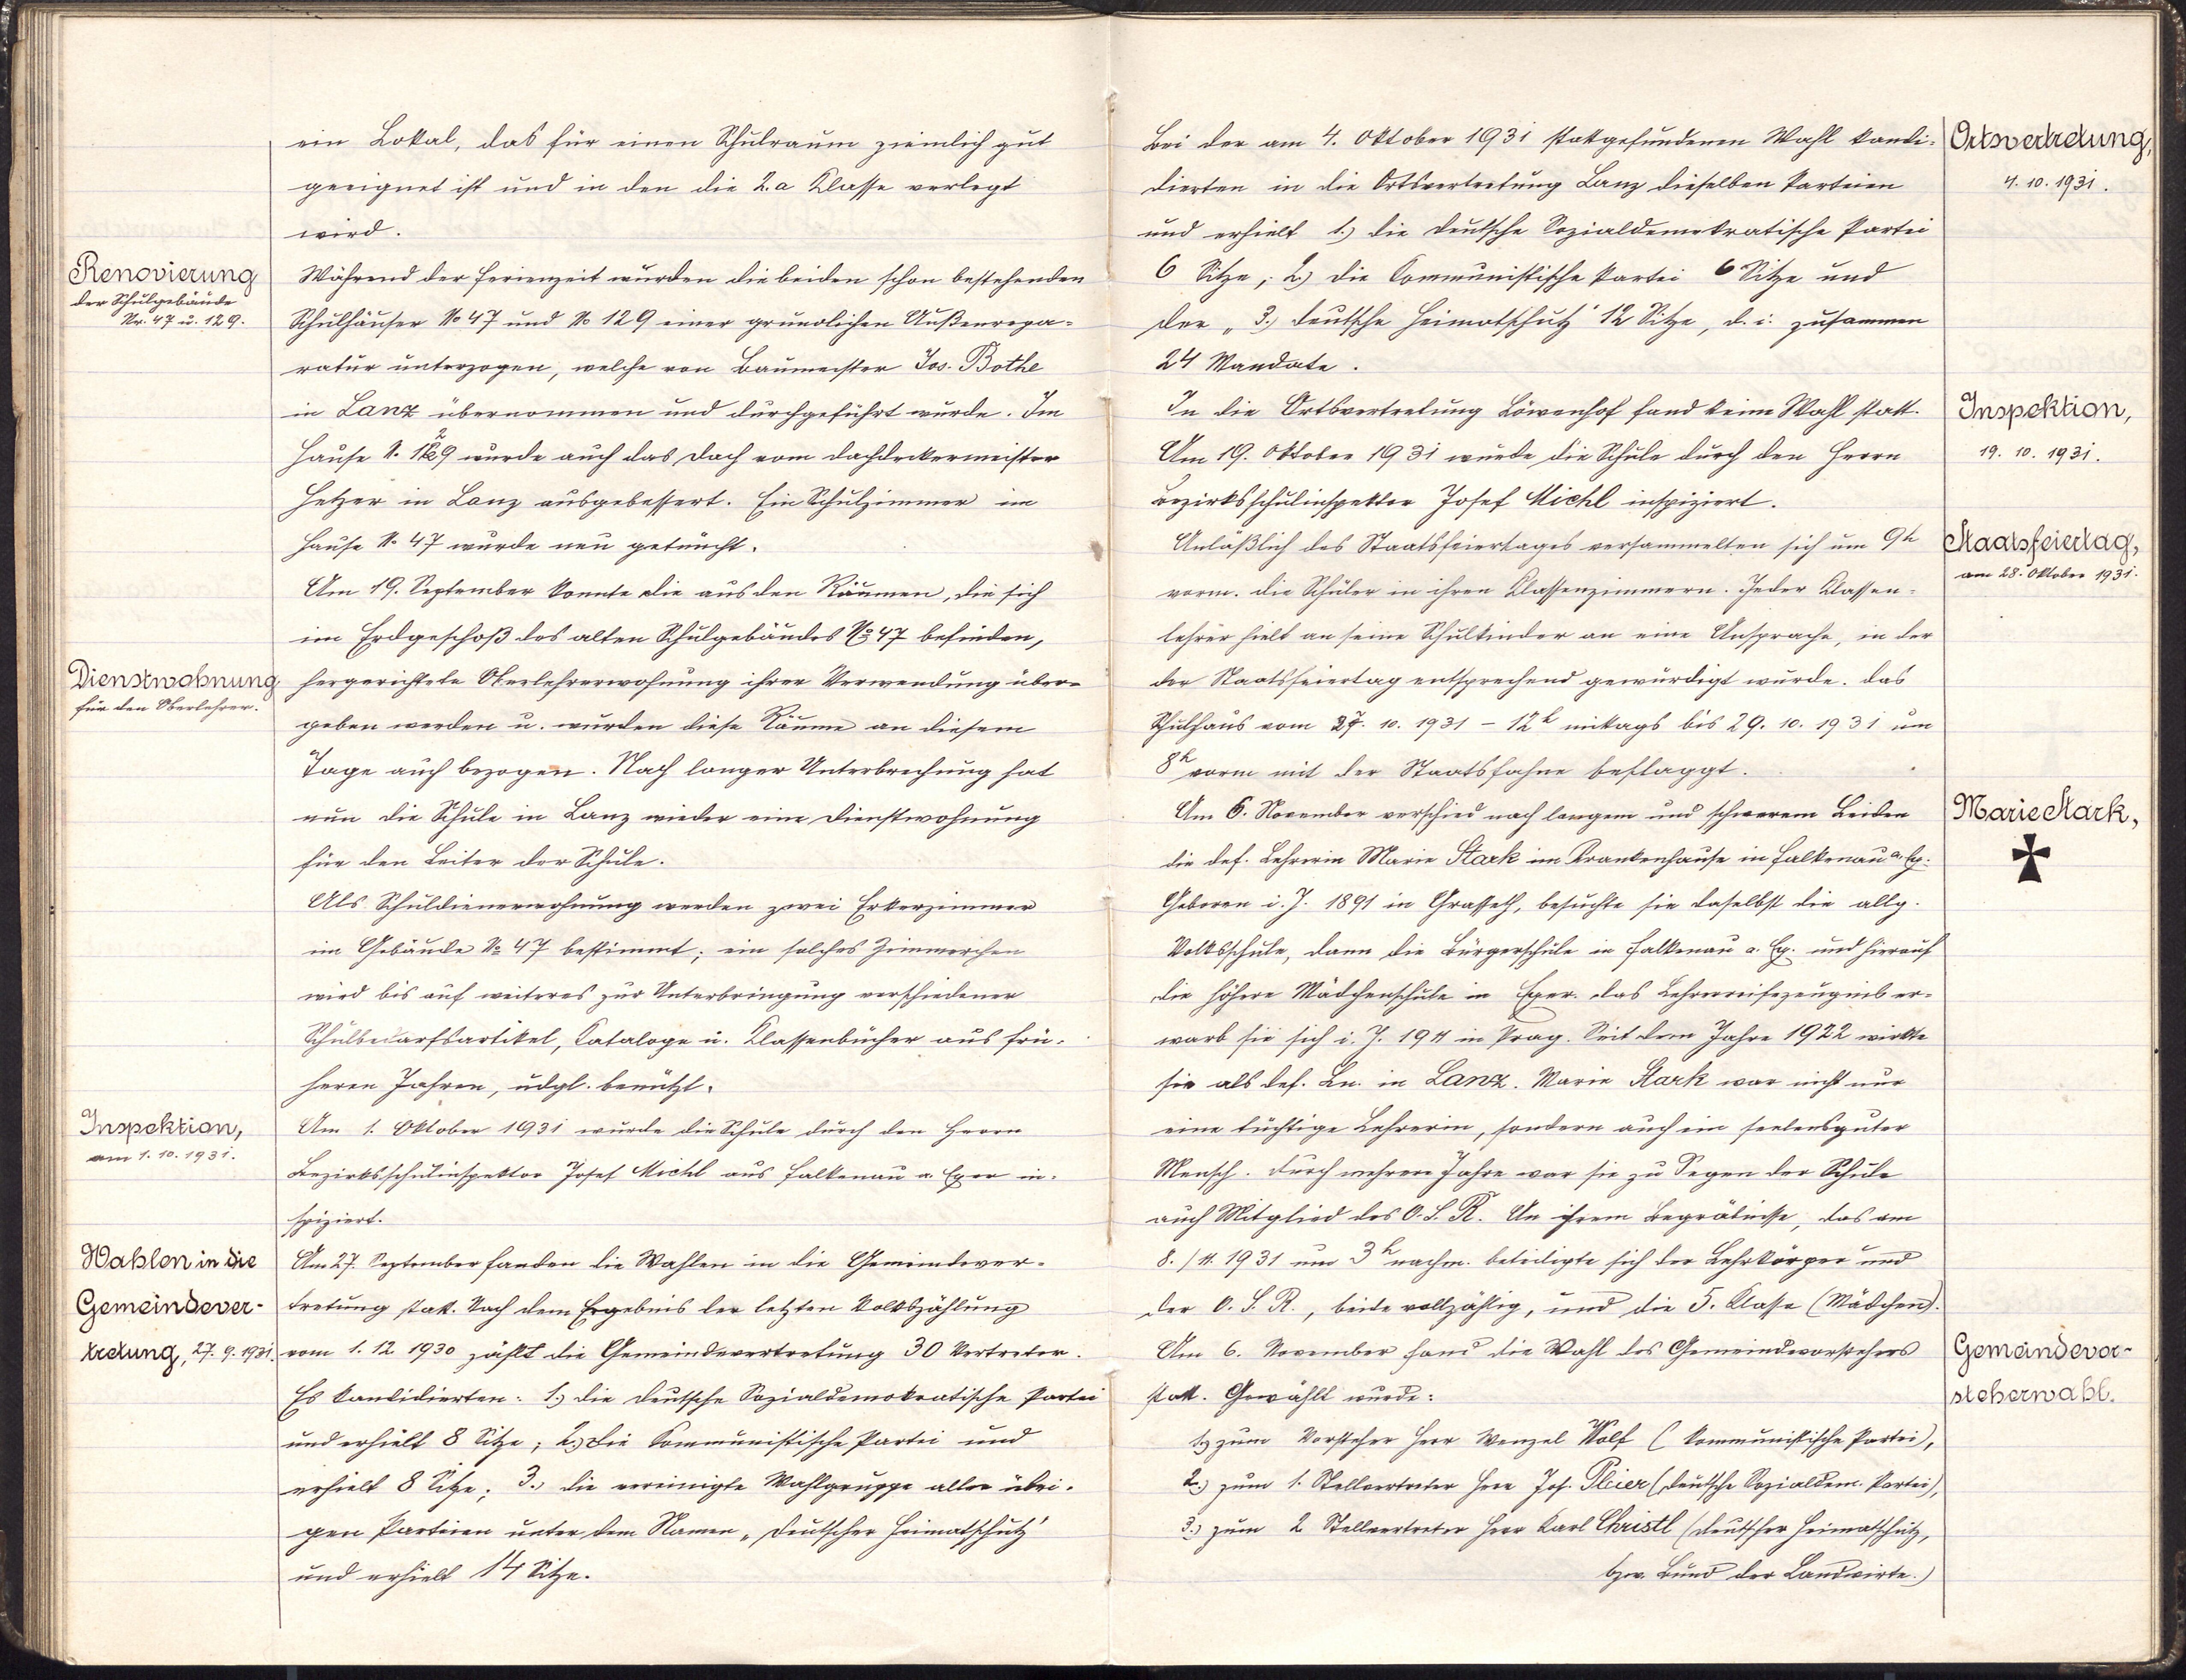 ein Lokal, das für einen Schulraum ziemlich gut
geeignet ist und in den die 2.a Klasse verlegt
wird.
Renovierung
der Schulgebäude
Nr. 47 u. 129.
Während der Ferienzeit wurden die beiden schon bestehenden
Schulhäuser No 47 und No 129 einer gründlichen Außenrepa-
ratur unterzogen, welche von Baumeister Jos. Bothe
in Lanz übernommen und durchgeführt wurde. Im
Hause N. 129 wurde auch das Dach vom Dachdeckermeister
Hetzer in Lanz ausgebessert. Ein Schulzimmer im
Hause No 47 wurde neu getüncht.
Am 19. September konnte die aus den Räumen, die sich
im Erdgeschoß des alten Schulgebäudes No 47 befinden,
Dienstwohnung
für den Oberlehrer.
hergerichtete Oberlehrerwohnung ihrer Verwendung über-
geben werden u. wurden diese Räume an diesem
Tage auch bezogen. Nach langer Unterbrechung hat
nun die Schule in Lanz wieder eine Dienstwohnung
für den Leiter der Schule.
Als Schuldienerwohnung werden zwei Erkerzimmer
im Gebäude No 47 bestimmt; ein solches Zimmerchen
wird bis auf weiteres zur Unterbringung verschiedener
Schulbedarfsartikel, Kataloge u. Klassenbücher aus frü-
heren Jahren, udgl. benützt.
Inspektion,
am 1. 10. 1931.
Am 1. Oktober 1931 wurde die Schule durch den Herrn
Bezirksschulinspektor Josef Michl aus Falkenau a. Eger in-
spiziert.
Wahlen in die
Gemeindever-
tretung, 27. 9. 1931.
Am 27. September fanden die Wahlen in die Gemeindever-
tretung statt. Nach dem Ergebnis der letzten Volkszählung
vom 1. 12. 1930 zählt die Gemeindevertretung 30 Vertreter.
Es kandidierten: 1.) die deutsche Sozialdemokratische Partei
und erhielt 8 Sitze; 2.) die Kommunistische Partei und
erhielt 8 Sitze; 3.) die vereinigte Wahlgruppe aller übri-
gen Parteien unter dem Namen „Deutscher Heimatschutz"
und erhielt 14 Sitze.
Bei der am 4. Oktober 1931 stattgefundenen Wahl kandi-
dierten in die Ortsvertretung Lanz dieselben Parteien
und erhielt 1.) die deutsche Sozialdemokratische Partei
6 Sitze; 2.) die Kommunistische Partei 6 Sitze und
der „3.) deutsche Heimatschutz" 12 Sitze, d. i. zusammen
24 Mandate.
Ortsvertretung,
4. 10. 1931.
In die Ortsvertretung Löwenhof fand keine Wahl statt.
Am 19. Oktober 1931 wurde die Schule durch den Herrn
Bezirksschulinspektor Josef Michl inspiziert.
Inspektion,
19. 10. 1931.
Anläßlich des Staatsfeiertages versammelten sich um 9h
vorm. die Schüler in ihren Klassenzimmern. Jeder Klassen-
lehrer hielt an seine Schulkinder an eine Ansprache, in der
der Staatsfeiertag entsprechend gewürdigt wurde. Das
Schulhaus vom 27. 10. 1931 - 12h mittags bis 29. 10. 1931 um
8h vorm mit der Staatsfahne beflaggt.
Staatsfeiertag,
am 28. Oktober 1931.
Am 6. November verschied nach langem und schwerem Leiden
die def. Lehrerin Marie Stark im Krankenhause in Falkenau a. Eg.
Geboren i. J. 1891 in Grasseth, besuchte sie daselbst die allg.
Volksschule, dann die Bürgerschule in Falkenau a. Eg. und hierauf
die höhere Mädchenschule in Eger. Das Lehrerreifezeugnis er-
warb sie sich i. J. 1911 in Prag. Seit dem Jahre 1922 wirkte
sie als def. Ln. in Lanz. Marie Stark war nicht nur
eine tüchtige Lehrerin, sondern auch ein seelensguter
Mensch. Durch mehrere Jahre war sie zu Segen der Schule
auch Mitglied des O. S. R. An ihrem Begräbnisse, das am
8./11. 1931 um 3h nachm. beteiligte sich der Lehrkörper und
der O. S. R., beide vollzählig, und die 5. Klasse (Mädchen).
Marie Stark,
Am 6. November fand die Wahl des Gemeindevorstehers
statt. Gewählt wurde:
Gemeindevor-
steherwahl.
1.) zum Vorsteher Herr Wenzel Wolf (kommunistische Partei),
2.) zum 1. Stellvertreter Herr Jos. Pleier (deutsche Sozialdem. Partei),
3.) zum 2 Stellvertreter Herr Karl Christl (deutscher Heimatschutz,
bzw. Bund der Landwirte.)